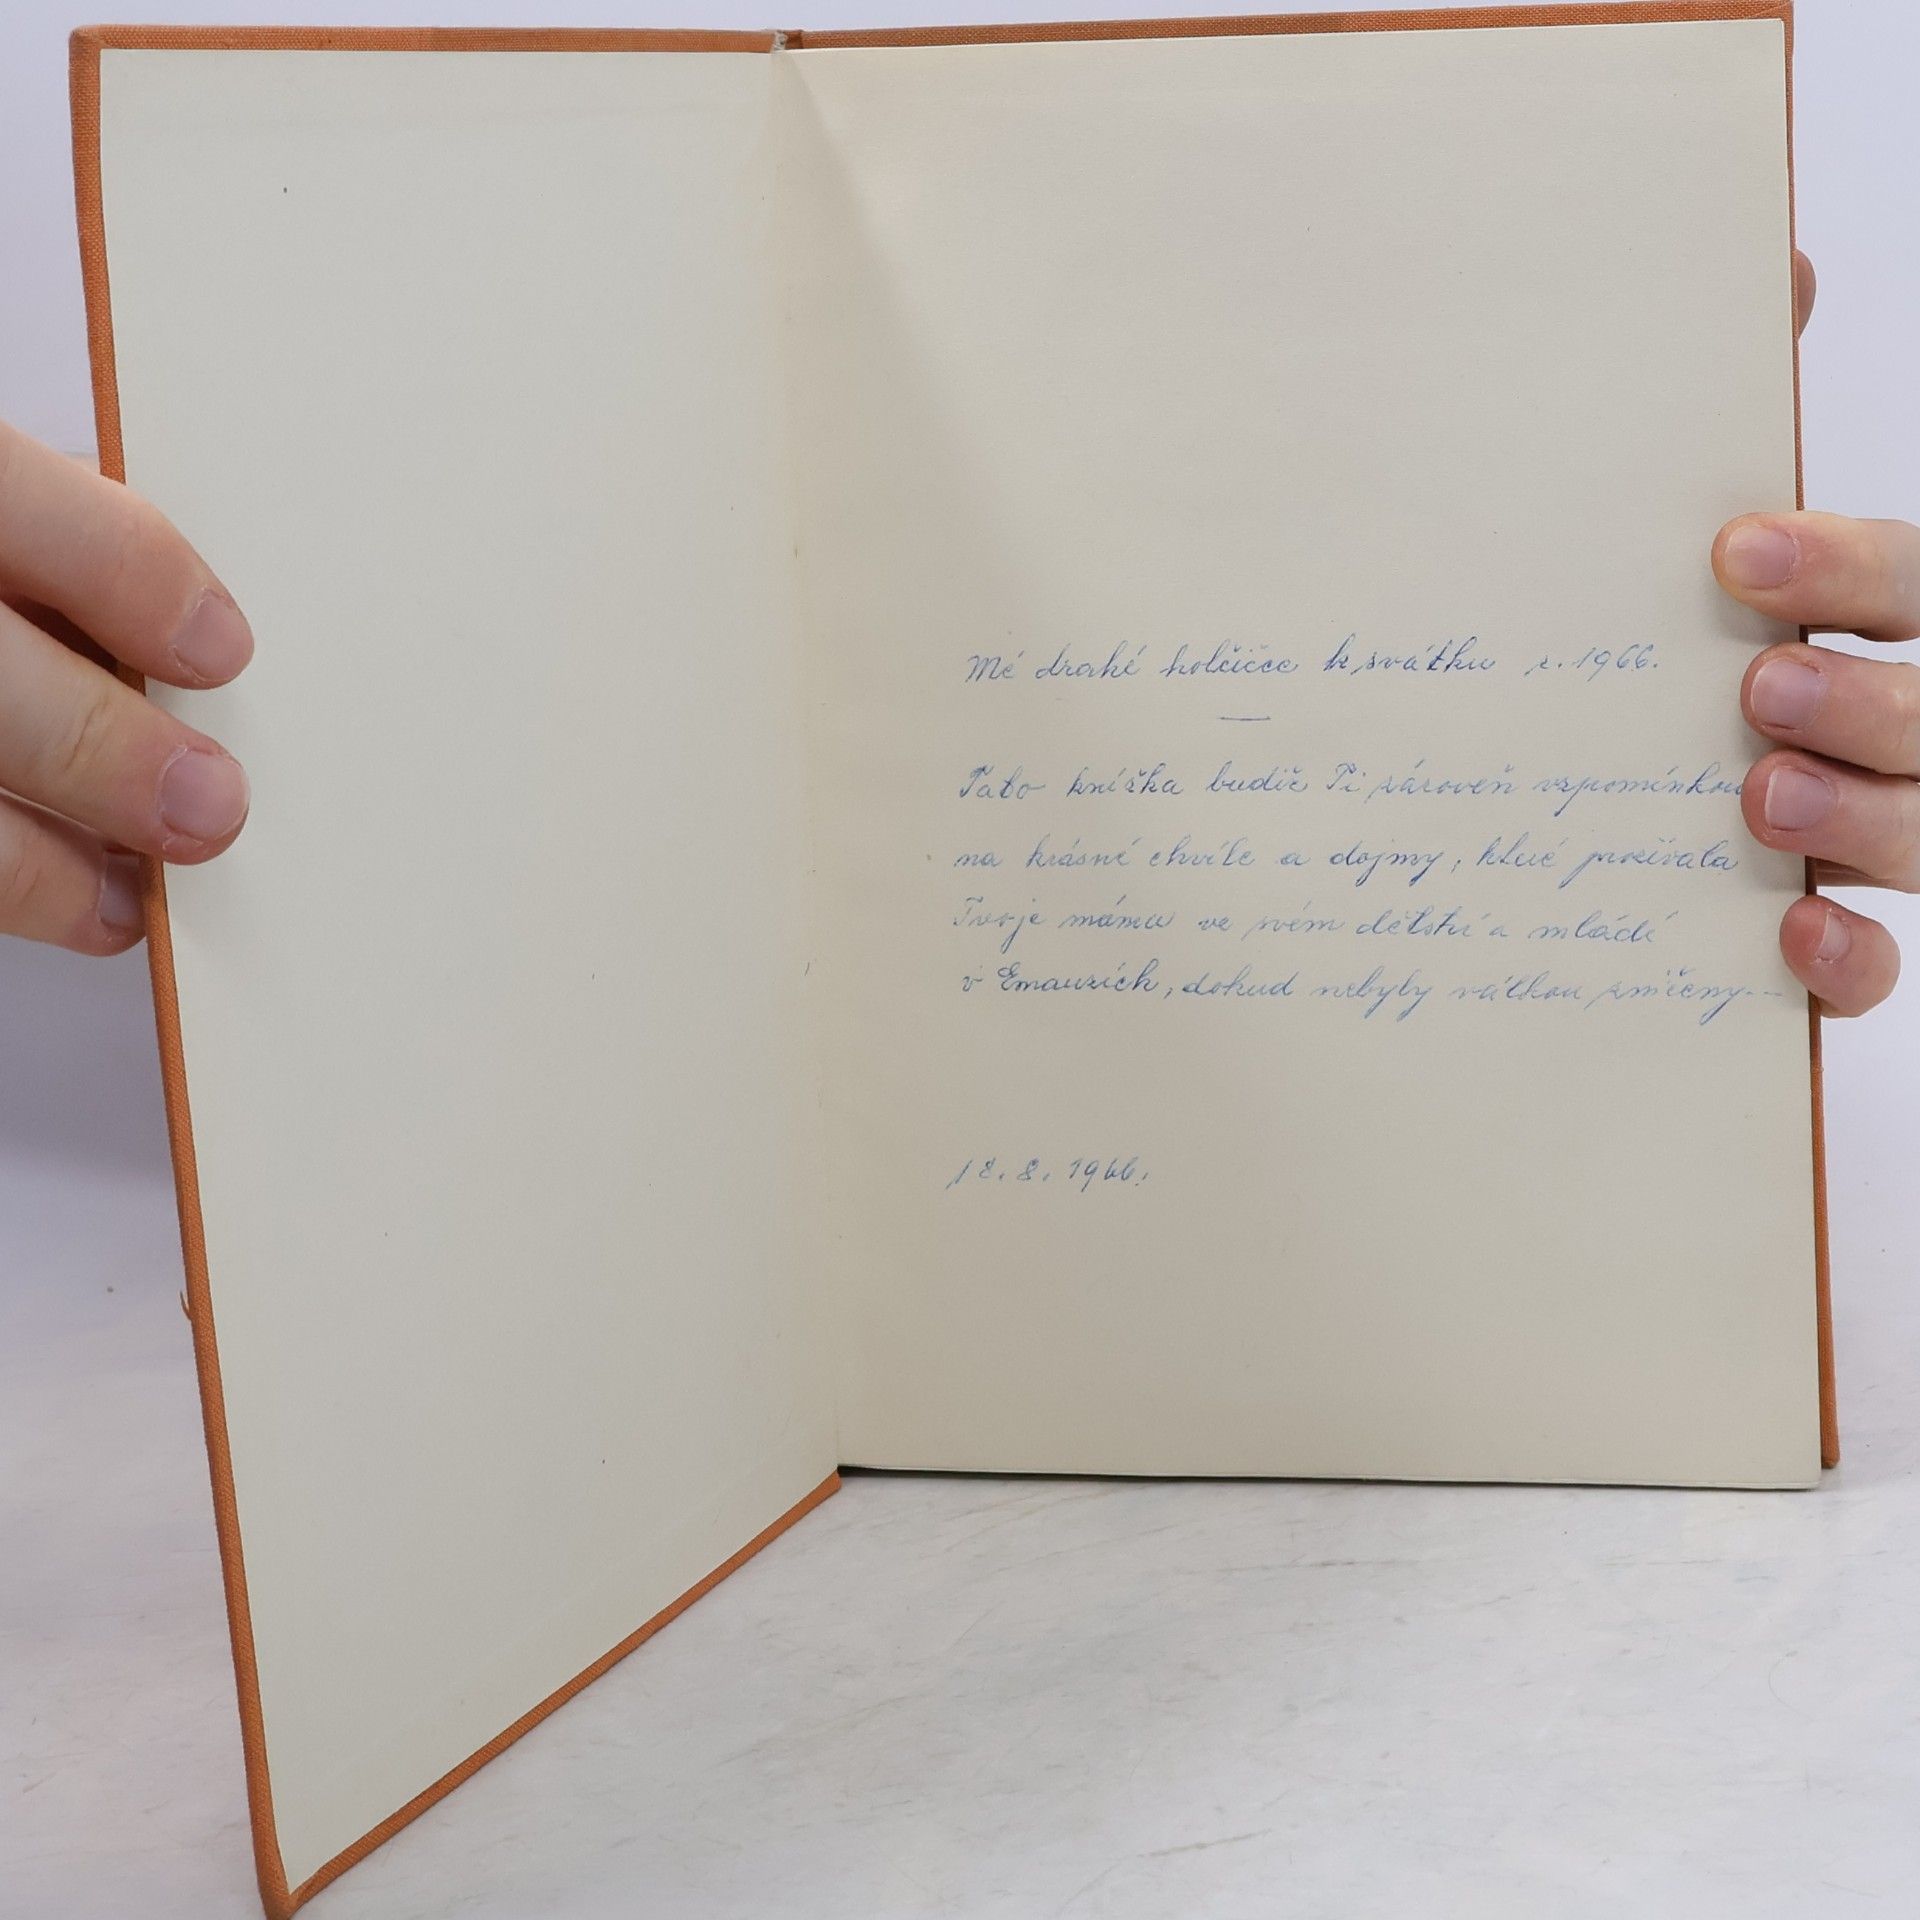 Mé drahé holčičce k svátku r. 1966.
Tato knížka budiž Ti zároveň vzpomínkou
na krásné chvíle a dojmy, které prožívala
Tvoje máma ve svém dětství a mládí
v Emauzích, dokud nebyly válkou zničeny--
18. 8. 1966.